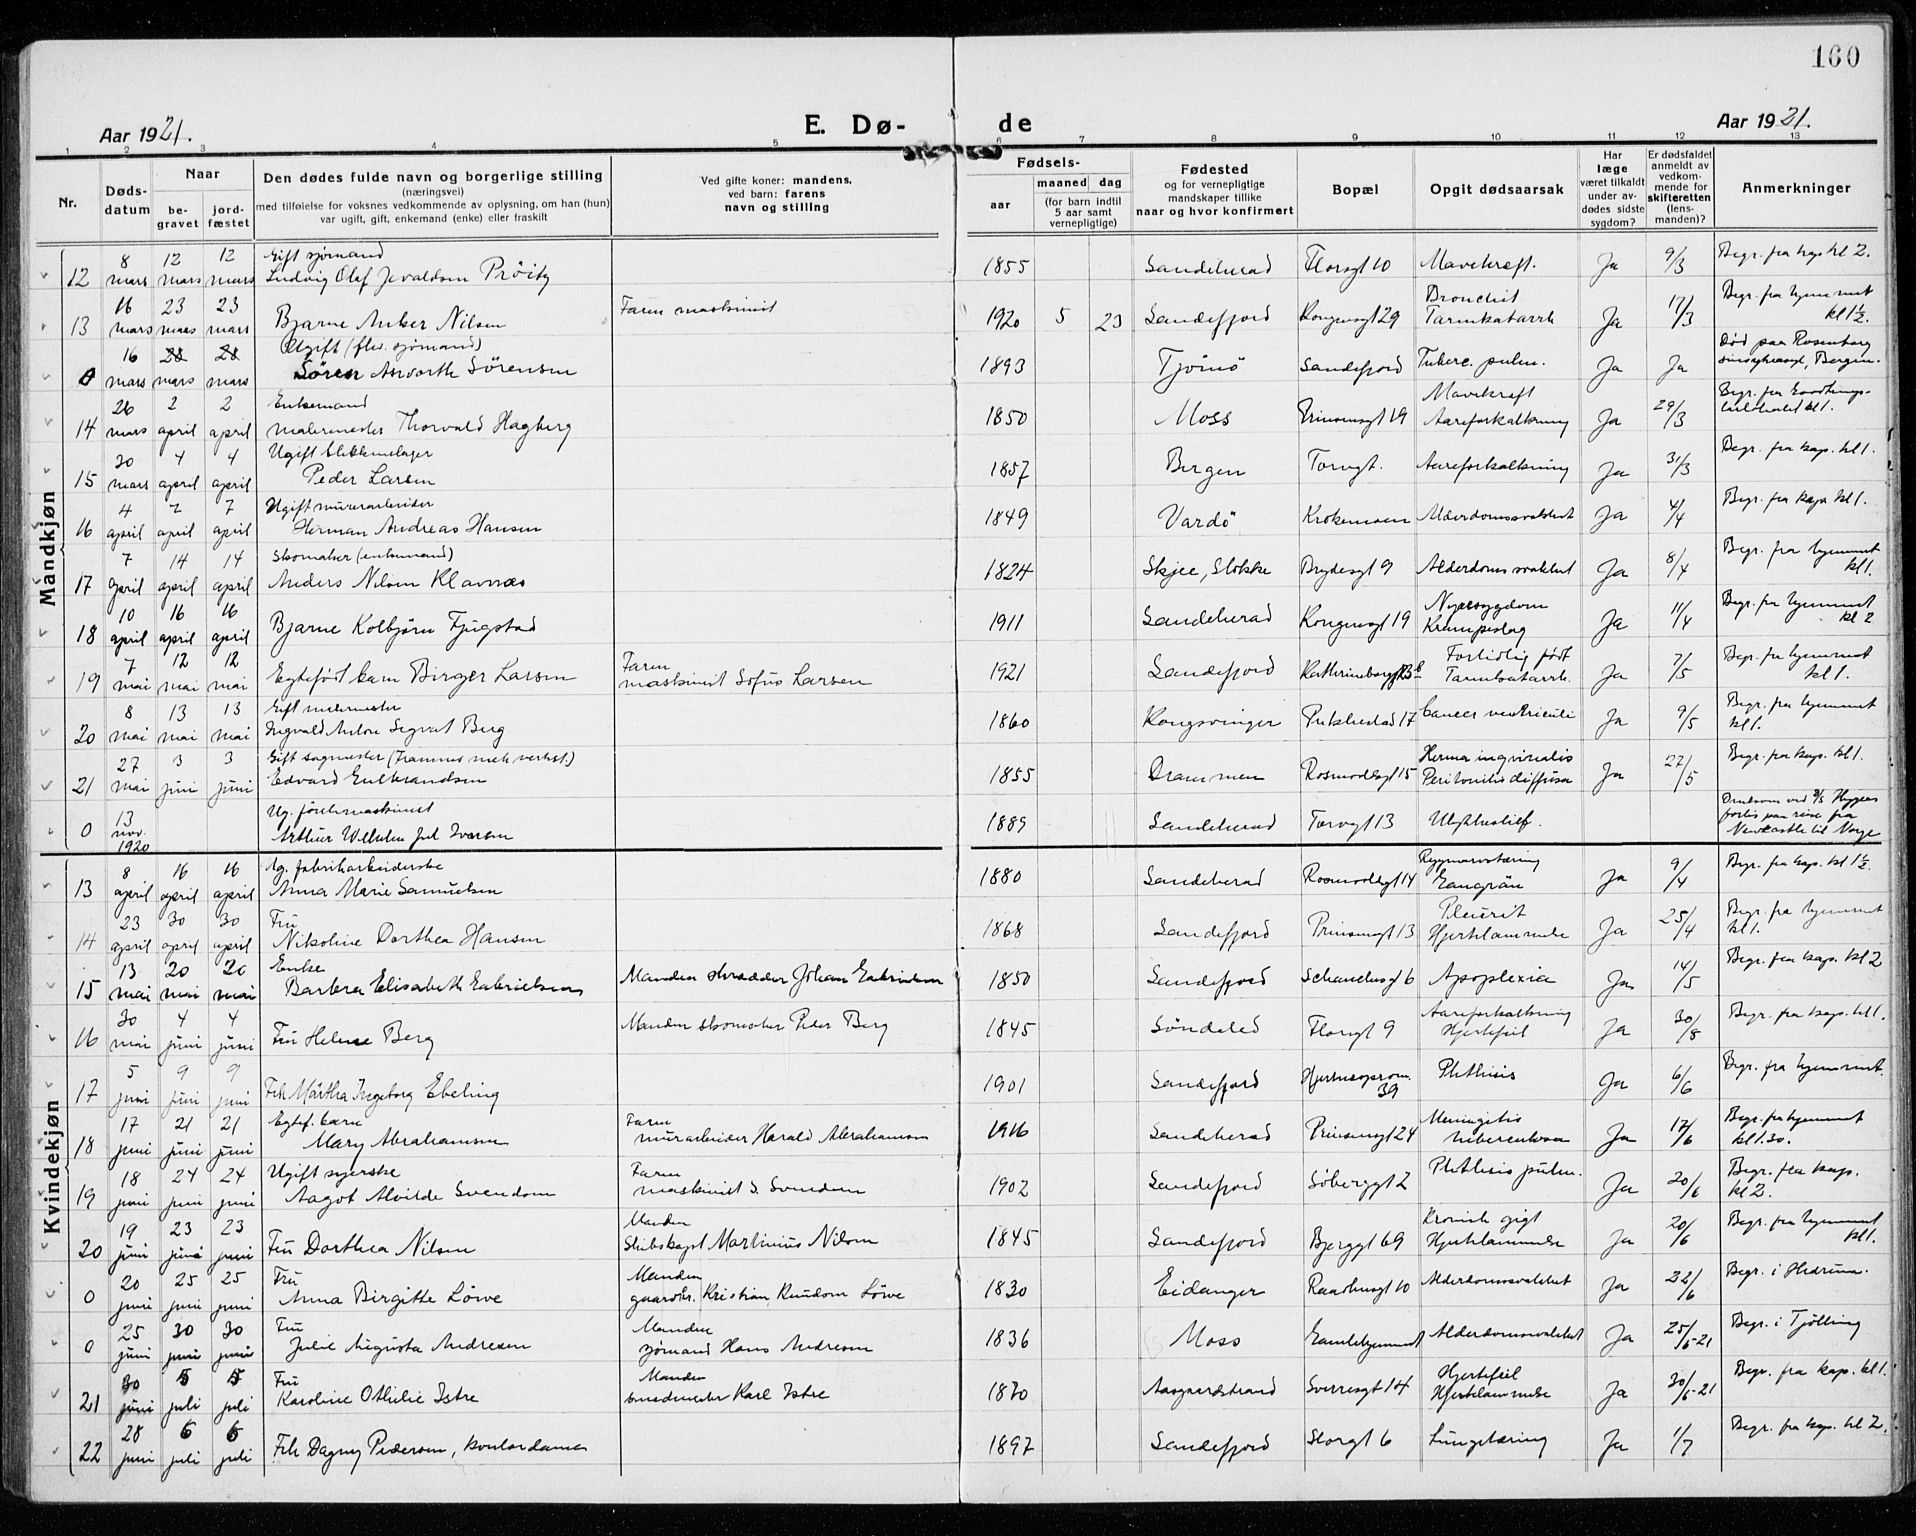 160
Aar 1921.
E. Dø-
de
Aar 1921.
1 2 3 4 5 6 7 8 9 10 11 12 13
Nr.
Døds-
datum
Naar
be-
gravet
jord-
fæstet
Den dødes fulde navn og borgerlige stilling
(næringsvei)
med tilføielse for voksnes vedkommende av oplysning, om han (hun)
var ugift, gift, enkemand (enke) eller fraskilt
Ved gifte koner: mandens,
ved barn: farens
navn og stilling
Fødsels-
aar
maaned
dag
(for barn indtil
5 aar samt
vernepligtige)
Fødested
og for vernepligtige
mandskaper tillike
naar og hvor konfirmert
Bopæl
Opgit dødsaarsak
Har
læge
været tilkaldt
under av-
dødes sidste
sygdom?
Er dødsfaldet
anmeldt av
vedkom-
mende for
skifteretten
(lens-
manden)?
Anmerkninger
Mandkjøn
12 8 mars 12 mars 12 mars Gift sjømand
Ludvig Olaf Prøitz 1855 Sandeherad Storgt 10 Mavekræft. Ja 9/3 Begr. fra kap kl 2.
13 16 mars 23 mars 23 mars Bjarne Anker Nilsen Faren maskinist 1920 5 23 Sandefjord Kongensgt 29 Bronchit
Tarmkatarrh Ja 17/3 Begr. fra hjemmet
kl 1½.
0 16 mars 28 mars 28 mars Ugift (flv. sjømand)
Sören Asvorth Sörensen 1893 Tjömö Sandefjord Tuberc. pulm. Ja Ja Død paa Rosenberg
Bergen.
14 26 mars 2 april 2 april Enkemand
malermester Thorvald Hagberg 1850 Moss Prinsensgt 19 Mavekræft
Aareforkalkning Ja 29/3 Begr. fra
kl 1.
15 30 mars 4 april 4 april Ugift blikkenslager
Peder Larsen 1857 Bergen Torvgt. Aareforkalkning Ja 31/3 Begr. fra kap. kl 1.
16 4 april 7 april 7 april Ugift murerarbeider
Herman Andreas Hansen 1849 Vardö Krokemoen Alderdomssvakhet Ja 4/4 Begr. fra kap kl 1.
17 7 april 14 april 14 april Skomaker (enkemand)
Anders Nilsen Klavnæs 1824 Skjee, Stokke Brydesgt 9 Alderdomssvakhet Ja 8/4 Begr. fra hjemmet
kl 1.
18 10 april 16 april 16 april Bjarne Kolbjörn Fjugstad 1911 Sandeherad Kongensgt 19 Nyresygdom
Krampeslag Ja 11/4 Begr. fra hjemmet
kl 2
19 7 mai 12 mai 12 mai Egtefödt barn Birger Larsen Faren
maskinist Sofus Larsen 1921 Sandefjord Fortidlig født
Tarmkatarrh. Ja 7/5 Begr. fra hjemmet
kl 1.
20 8 mai 13 mai 13 mai Gift malermester
Ingvald Anton Sigvart Berg 1860 Kongsvinger Pukkestad 17 Cancer ventriculi Ja 9/5 Begr. fra hjemmet
kl 1.
21 27 mai 3 juni 3 juni Gift sagmester (Framnæs mek verkst.)
Edvard Gulbrandsen 1855 Drammen Rosmodesgt 15 Hernia ingvinalis
Peritonitis diffusa Ja 27/5 Begr. fra kap. kl 1.
0 13 nov. 1920 Ug. förstemaskinist
Arthur Wilhelm Jul Iversen 1889 Sandeherad Torvgt 13 Ulykkestilf. Omkom ved
forlis paa reise fra
Newcastle til Norge
Kvindekjøn
13 8 april 16 april 16 april Ug. fabrikarbeiderske
Anna Marie Samuelsen 1880 Sandeherad Rosmodesgt 14 Rygmarvstæring
Gangrän Ja 9/4 Begr. fra kap. kl 1½.
14 23 april 30 april 30 april Fru
Nikoline Dorthea Hansen 1868 Sandefjord Prinsensgt 13 Pleurit
Hjertelammelse Ja 25/4 Begr. fra hjemmet
kl 1.
15 13 mai 20 mai 20 mai Enke
Barbra Elisabeth Gabrielsen Manden skrædder Johan Gabrielsen 1850 Sandefjord 6 Apoplexia Ja 14/5 Begr. fra kap. kl 2
16 30 mai 4 juni 4 juni Fru Helene Berg Manden skomaker Peder Berg 1845 Söndeled Storgt 9 Aareforkalkning
Hjertefeil Ja 30/8 Begr. fra kap. kl 1.
17 5 juni 9 juni 9 juni Frk Märtha Ingeborg Ebeling 1901 Sandefjord 39 Phthisis Ja 6/6 Begr. fra hjemmet.
18 17 juni 21 juni 21 juni Egtef. barn
Mary Abrahamsen Faren
murarbeider Harald Abrahamsen 1916 Sandeherad Prinsensgt 24 Meningitis
tuberculosa Ja 17/6 Begr. fra hjemmet
kl 1.30.
19 18 juni 24 juni 24 juni Ugift syerske
Aagot Alvilde Svendsen Faren
maskinist S. Svendsen 1902 Sandefjord Söbergt 2 Phthisis pulm. Ja 20/6 Begr. fra kap.
kl 2.
20 19 juni 23 juni 23 juni Fru Dorthea Nilsen Manden
Skibskapt Martinius Nilsen 1845 Sandefjord Bjerggt 69 Kronisk gigt
Hjertelammelse Ja 20/6 Begr. fra hjemmet
kl 1.
0 20 juni 25 juni 25 juni Fru
Anna Birgitte Löwe Manden
gaardbr. Kristian Knudsen Löwe 1830 Eidanger Raadhusgt 10 Alderdomssvakhet Ja 22/6 Begr. i Hedrum.
0 25 juni 30 juni 30 juni Fru
Julie Augusta Andresen Manden
sjømand Hans Andresen 1836 Moss Gamlehjemmet Alderdomssvakhet Ja 25/6-21 Begr. i Tjölling
21 30 juni 5 juli 5 juli Fru
Karoline Othilie Istre Manden
smedmester Karl Istre 1870 Aasgaardstrand Sverresgt 14 Hjertefeil
Hjertelammelse Ja 30/6-21 Begr. fra kap. kl 1.
22 28 juni 6 juli 6 juli Frk Dagny Pedersen, kontordame 1897 Sandefjord Storgt 6 Lungetæring Ja 1/7 Begr. fra kap. kl 2.